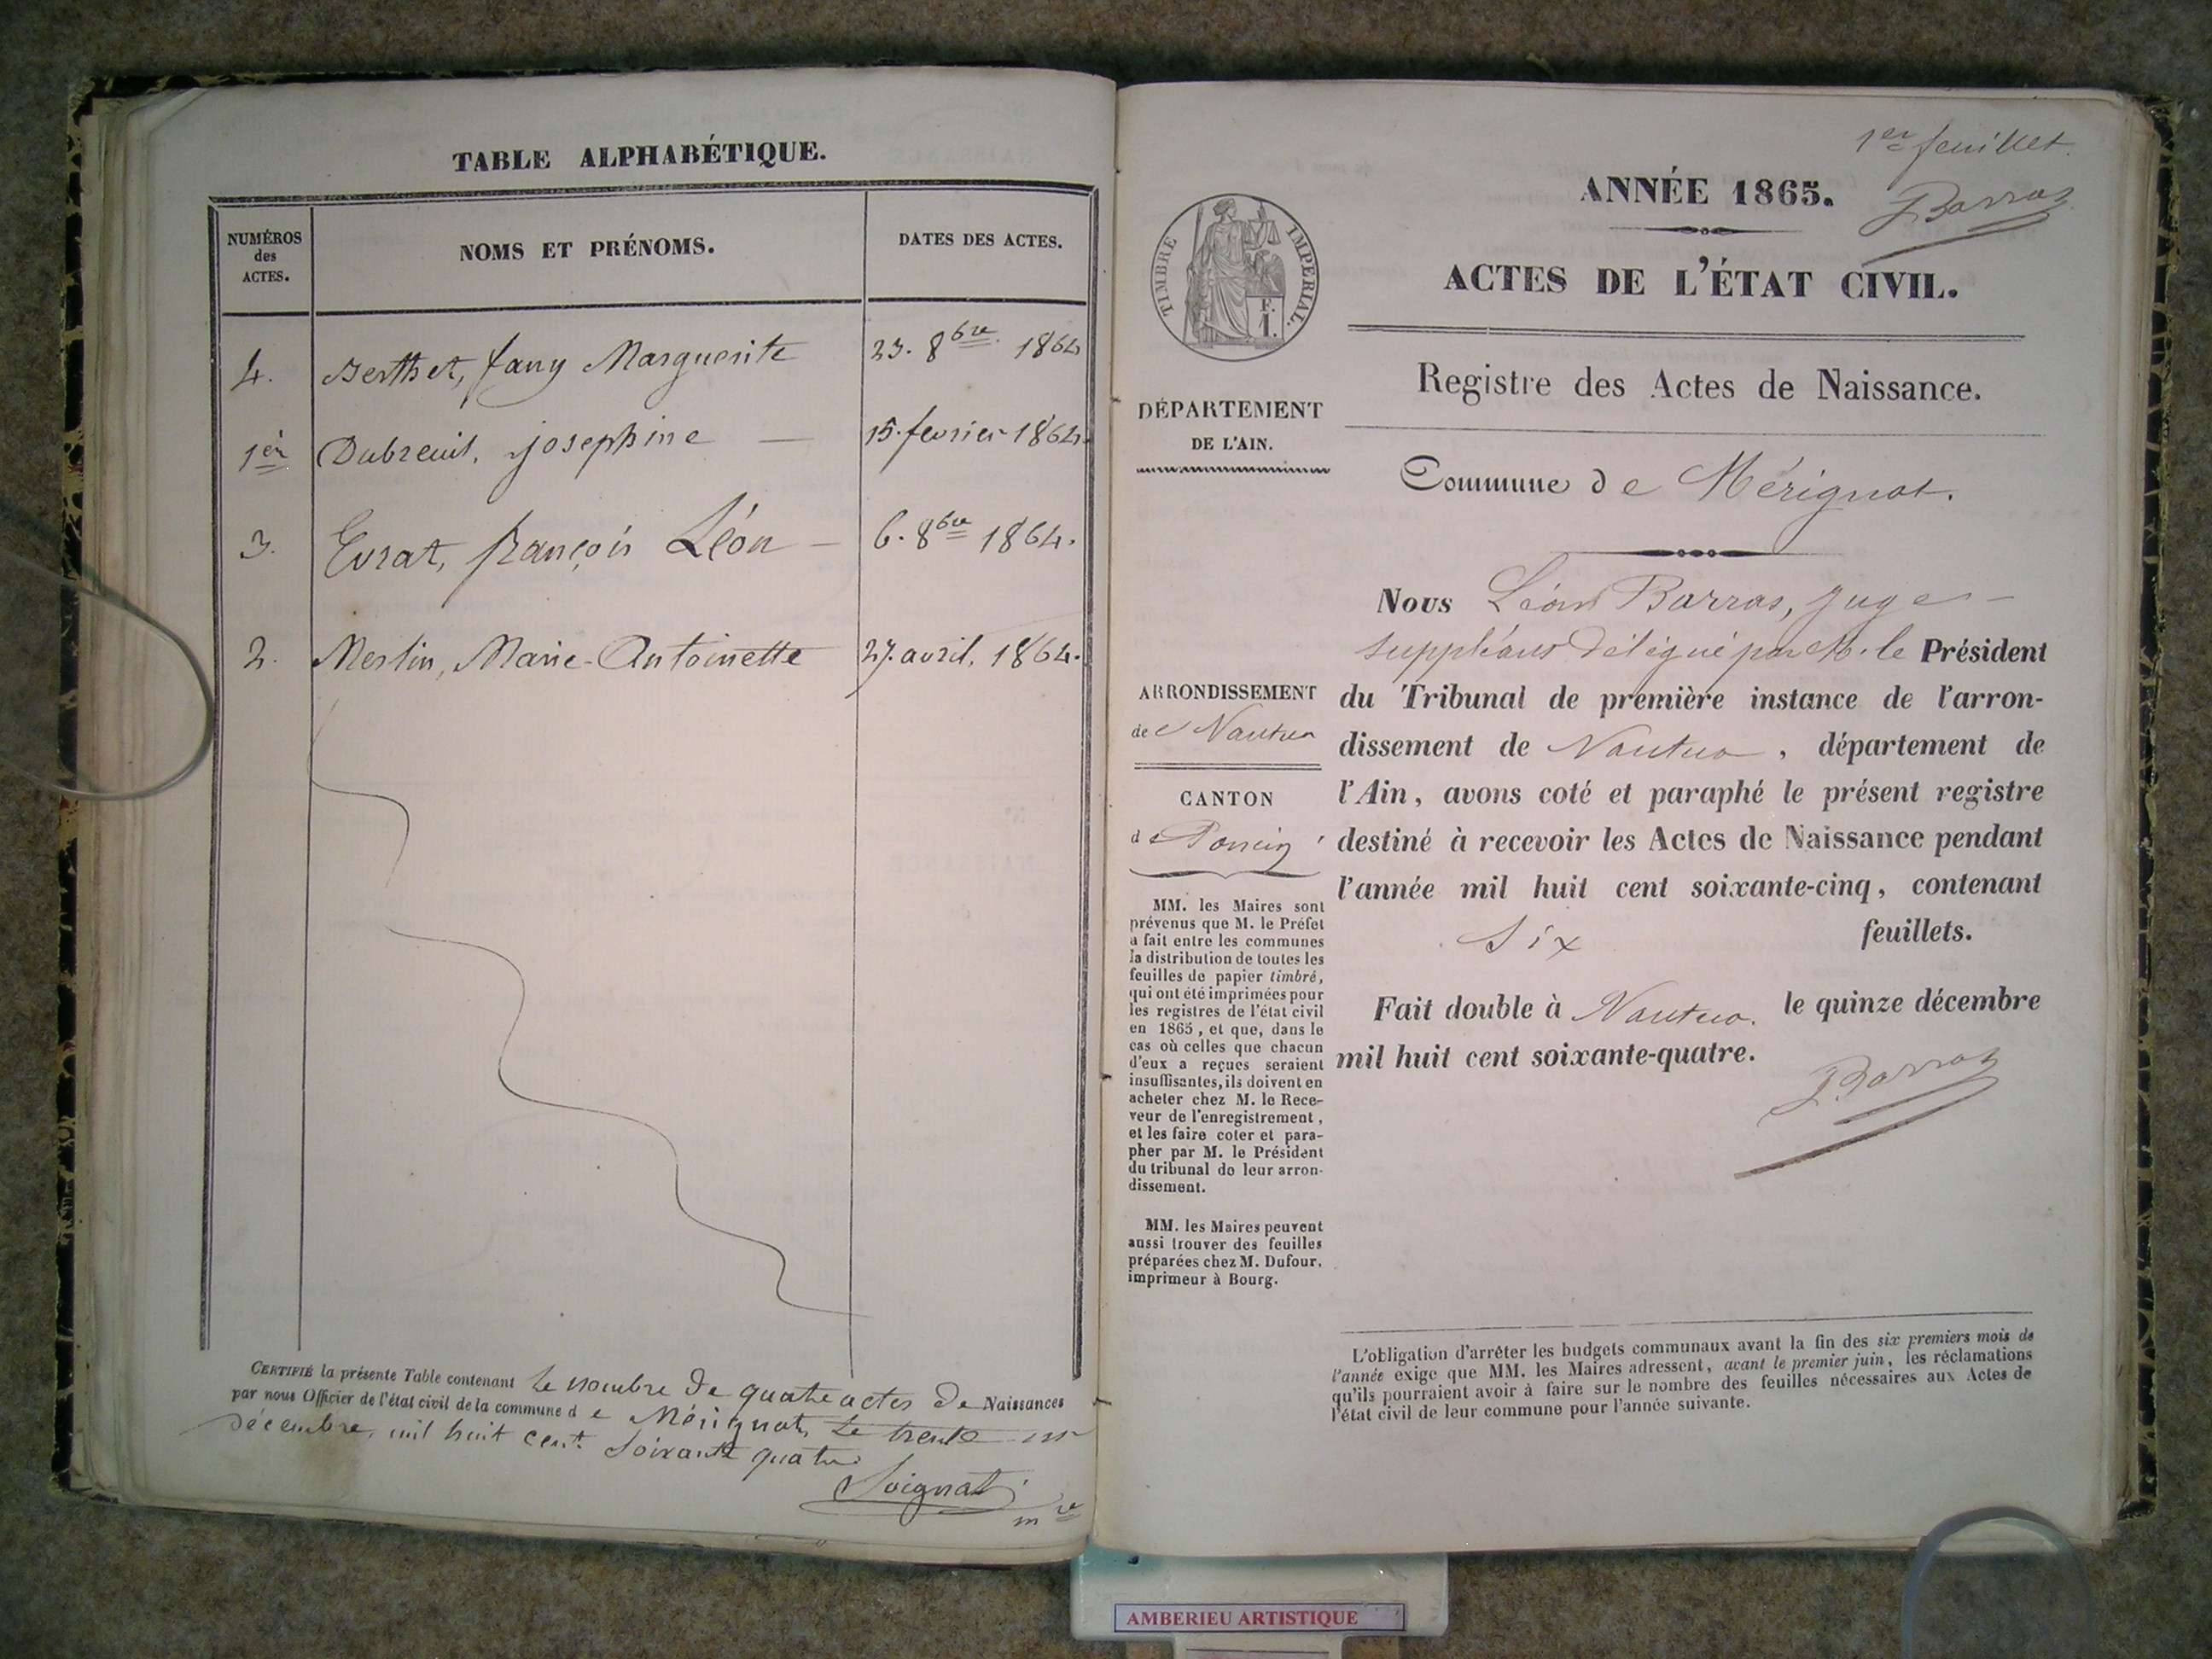 TABLE ALPHABÉTIQUE.
NUMÉROS
des
ACTES.
NOMS ET PRÉNOMS.
DATES DES ACTES.
4. Berthet, fany Marguerite 23. 8bre 1864
1er Dubreuil, josephine — 15. fevrier 1864.
3. Evrat, françois Léon — 6. 8bre 1864.
2. Merlin, Marie-Antoinette 27. avril. 1864.
CERTIFIÉ la présente Table contenant le nombre de quatre actes de Naissances
par nous Officier de l'état civil de la commune de Mérignat, le trente un
décembre, mil huit cent soixante quatre
Soignat
mre
1er feuillet.
Barras
ANNÉE 1865.
ACTES DE L'ÉTAT CIVIL.
TIMBRE IMPERIAL.
F.
1.
Registre des Actes de Naissance.
DÉPARTEMENT
DE L'AIN.
Commune de Mérignat.
Nous Léon Barras, juge —
suppléant délégué par M. le Président
du Tribunal de première instance de l'arron-
dissement de Nantua, département de
l'Ain, avons coté et paraphé le présent registre
destiné à recevoir les Actes de Naissance pendant
l'année mil huit cent soixante-cinq, contenant
six feuillets.
Fait double à Nantua. le quinze décembre
mil huit cent soixante-quatre.
Barras
ARRONDISSEMENT
de Nantua
CANTON
de Poncin
MM. les Maires sont
prévenus que M. le Préfet
a fait entre les communes
la distribution de toutes les
feuilles de papier timbré,
qui ont été imprimées pour
les registres de l'état civil
en 1865, et que, dans le
cas où celles que chacun
d'eux a reçues seraient
insuffisantes, ils doivent en
acheter chez M. le Rece-
veur de l'enregistrement,
et les faire coter et para-
pher par M. le Président
du tribunal de leur arron-
dissement.
MM. les Maires peuvent
aussi trouver des feuilles
préparées chez M. Dufour,
imprimeur à Bourg.
L'obligation d'arrêter les budgets communaux avant la fin des six premiers mois de
l'année exige que MM. les Maires adressent, avant le premier juin, les réclamations
qu'ils pourraient avoir à faire sur le nombre des feuilles nécessaires aux Actes de
l'état civil de leur commune pour l'année suivante.
AMBERIEU ARTISTIQUE